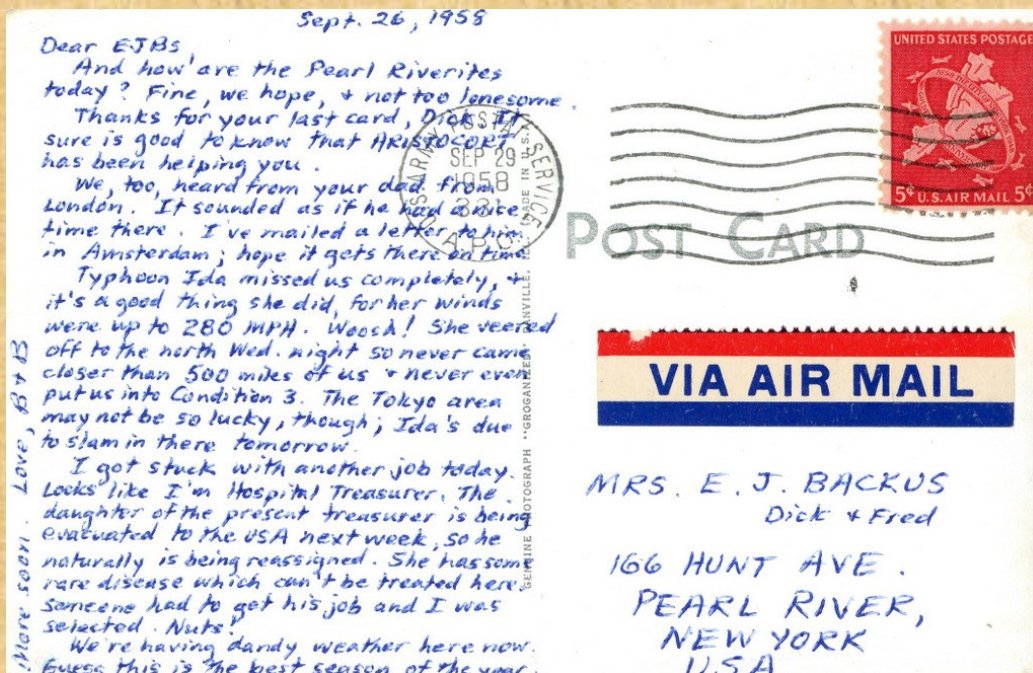 Sept. 26, 1958
Dear EJBs,
And how are the Pearl Riverites
today? Fine, we hope, + not too lonesome.
Thanks for your last card, Dick. It
sure is good to know that ARISTOCORT
has been helping you.
We, too, heard from your dad from
London. It sounded as if he had a nice
time there. I've mailed a letter to him
in Amsterdam; hope it gets there on time
Typhoon Ida missed us completely, +
it's a good thing she did, for her winds
were up to 280 MPH. Woosh! She veered
off to the north Wed. night so never came
closer than 500 miles of us + never even
put us into Condition 3. The Tokyo area
may not be so lucky, though; Ida's due
to slam in there tomorrow.
I got stuck with another job today.
Looks like I'm Hospital Treasurer. The
daughter of the present treasurer is being
evacuated to the USA next week, so he
naturally is being reassigned. She has some
rare disease which can't be treated here.
Someone had to get his job and I was
selected. Nuts!
We're having dandy weather here now.
Guess this is the best season of the year.
More soon. Love, B + B
U.S. ARMY POSTAL SERVICE
SEP 29
1958
331
A.P.O.
GENUINE PHOTOGRAPH "GROGANIZED" ANVILLE, MADE IN U.S.A.
POST CARD
UNITED STATES POSTAGE
5¢ U.S. AIR MAIL 5¢
VIA AIR MAIL
MRS. E. J. BACKUS
Dick + Fred
166 HUNT AVE.
PEARL RIVER,
NEW YORK
USA